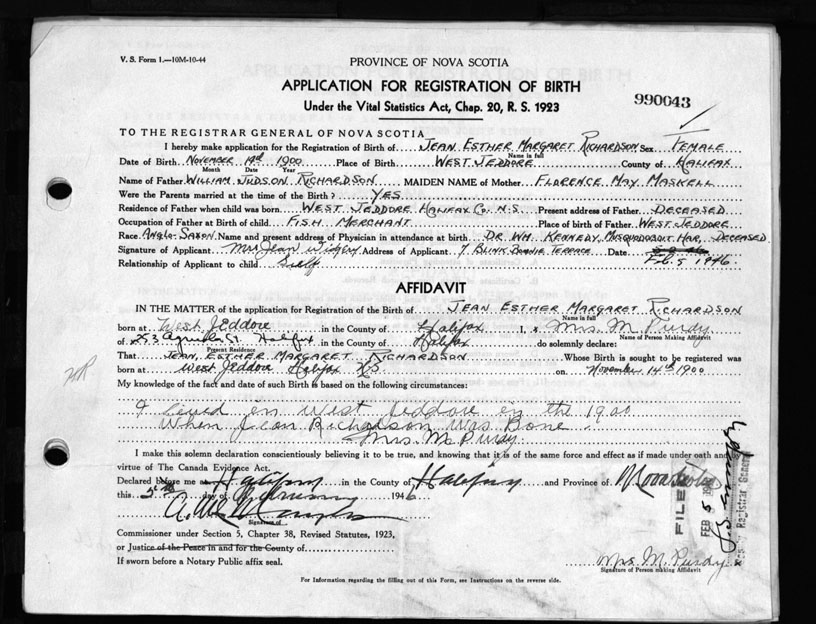 V. S. Form 1.—10M-10-44
PROVINCE OF NOVA SCOTIA
APPLICATION FOR REGISTRATION OF BIRTH
Under the Vital Statistics Act, Chap. 20, R. S. 1923
990043
TO THE REGISTRAR GENERAL OF NOVA SCOTIA
I hereby make application for the Registration of Birth of JEAN ESTHER MARGARET RICHARDSON Sex FEMALE
Name in full
Date of Birth NOVEMBER 1900 Place of Birth WEST JEDDORE County of HALIFAX
Month Date Year
Name of Father WILLIAM JUDSON RICHARDSON MAIDEN NAME of Mother FLORENCE MAY MASKELL
Were the Parents married at the time of the Birth? YES
Residence of Father when child was born WEST JEDDORE HALIFAX CO. N.S. Present address of Father DECEASED
Occupation of Father at Birth of child FISH MERCHANT Place of birth of Father WEST JEDDORE
Race ANGLO-SAXON Name and present address of Physician in attendance at birth DR WM. KENNEDY, MUSQUODOBOIT HAR, DECEASED
Signature of Applicant Mrs Jean Address of Applicant 7 BLINK BONNIE TERRACE Date Feb 5 1946
Relationship of Applicant to child Self
AFFIDAVIT
IN THE MATTER of the application for Registration of Birth of JEAN ESTHER MARGARET RICHARDSON
Name in full
born at West Jeddore in the County of Halifax I, Mrs. M Purdy
Name of Person Making Affidavit
of 253 St Halifax in the County of Halifax do solemnly declare:
Present Residence
That JEAN ESTHER MARGARET RICHARDSON Whose Birth is sought to be registered was
born at West Jeddore Halifax N.S. on November 14th 1900
My knowledge of the fact and date of such Birth is based on the following circumstances:
I lived in West Jeddore in the 1900
When Jean Richardson Was Bone.
Mrs. M. Purdy
I make this solemn declaration conscientiously believing it to be true, and knowing that it is of the same force and effect as if made under oath and by
virtue of The Canada Evidence Act.
Declared before me at Halifax in the County of Halifax and Province of Nova Scotia
this 5th day of February 1946
Signature of
Commissioner under Section 5, Chapter 38, Revised Statutes, 1923,
or Justice of the Peace in and for the County of
If sworn before a Notary Public affix seal.
FILED
FEB 5
Deputy Registrar General
Mrs M. Purdy
Signature of Person making Affidavit
For Information regarding the filling out of this Form, see Instructions on the reverse side.